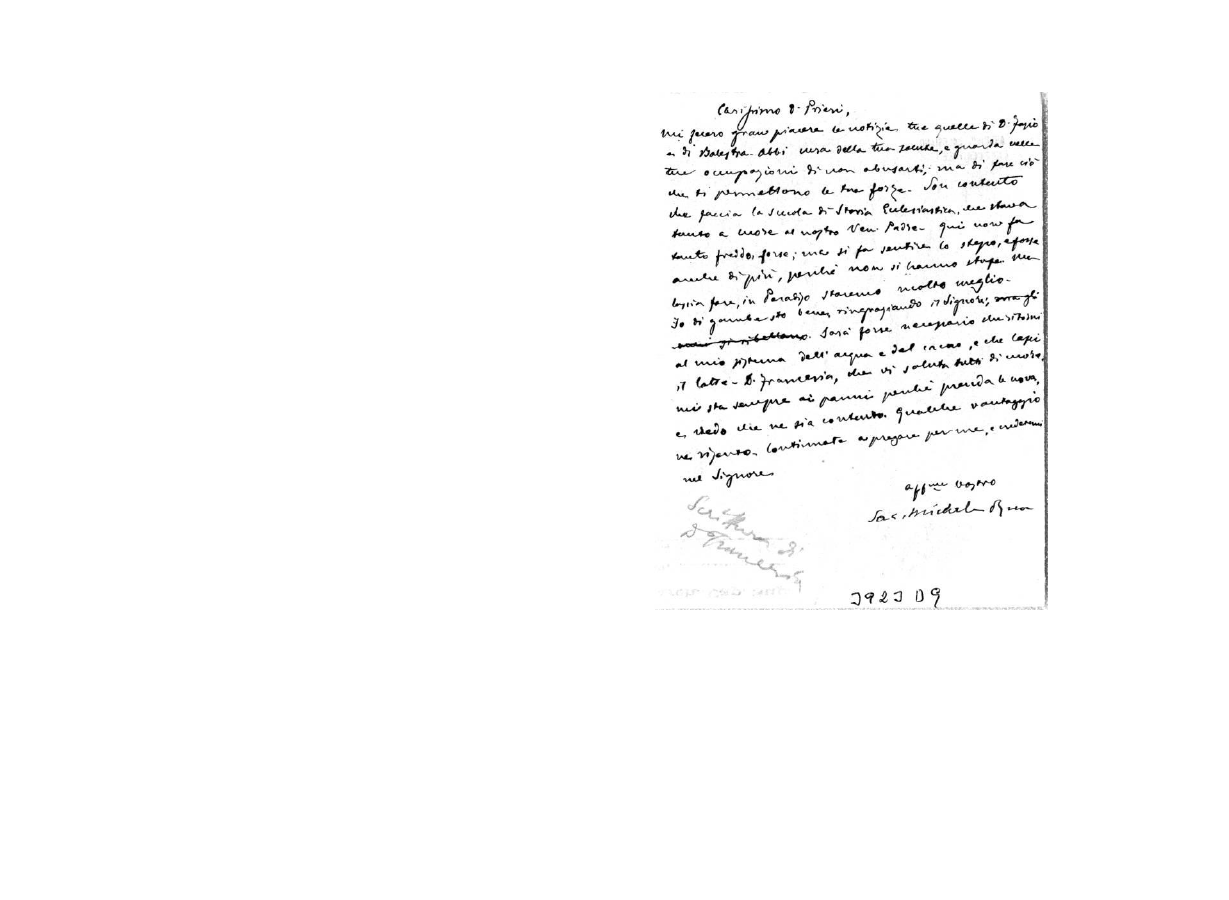 Carissimo D. Prieri,
mi fecero gran piacere le notizie tue quelle di D. Fasio
e di Balestra. Abbi cura della tua salute, e guarda nelle
tue occupazioni di non abusarti; ma di fare ciò
che ti permettono le tue forze. Son contento
che faccia la scuola di Storia Ecclesiastica, che stava
tanto a cuore al nostro Ven. Padre. Qui non fa
tanto freddo, forse; ma si fa sentire lo stesso, e forse
anche di più, perchè non si hanno stufe. Ma
lascia fare, in Paradiso staremo molto meglio.
Io di gambe sto bene, ringraziando il Signore; ma gli
si ribellano. Sarà forse necessario che ritorni
al mio sistema dell'acqua e del cacao, e che lasci
il latte. D. Francesia, che vi saluta tutti di cuore,
mi sta sempre ai panni perchè prenda le uova,
e vedo che ne sia contento. Qualche vantaggio
ne risento. Continuate a pregare per me, e credetemi
nel Signore
aff.mo vostro
Sac. Michele Rua
Scrittura di
D Francesia
3923 D9